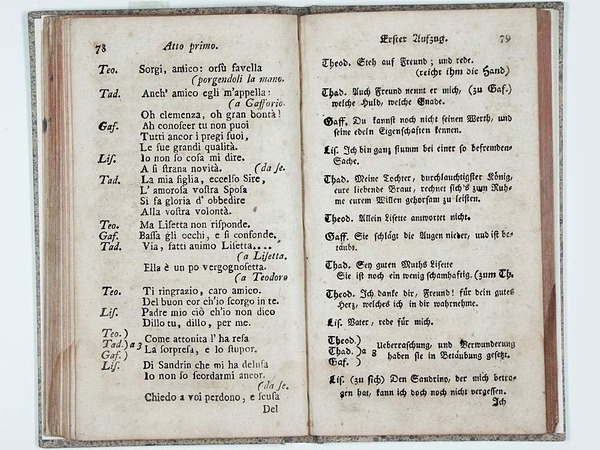 78 Atto primo.
Teo. Sorgi, amico: orsù favella
(porgendoli la mano.
Tad. Anch' amico egli m'appella:
(a Gafforio.
Oh clemenza, oh gran bontà!
Gaf. Ah conoscer tu non puoi
Tutti ancor i pregi suoi,
Le sue grandi qualità.
Lis. Io non so cosa mi dire.
A si strana novità. (da se.
Tad. La mia figlia, eccelso Sire,
L' amorosa vostra Sposa
Si fa gloria d' obbedire
Alla vostra volontà.
Teo. Ma Lisetta non risponde.
Gaf. Bassa gli occhi, e si confonde.
Tad. Via, fatti animo Lisetta....
(a Lisetta.
Ella è un po vergognosetta.
(a Teodoro
Teo. Ti ringrazio, caro amico.
Del buon cor ch'io scorgo in te.
Lis. Padre mio ciò ch'io non dico
Dillo tu, dillo, per me.
Teo. )
Tad. ) a 3 Come attonita l' ha resa
Gaf. ) La sorpresa, e lo stupor.
Lis. Di Sandrin che mi ha delusa
Io non so scordarmi ancor.
(da se.
Chiedo a voi perdono, e scusa
Del
Erster Aufzug. 79
Theod. Steh auf Freund; und rede.
(reicht ihm die Hand)
Thad. Auch Freund nennt er mich, (zu Gaf.)
welche Huld, welche Gnade.
Gaff. Du kannst noch nicht seinen Werth, und
seine edeln Eigenschaften kennen.
Lis. Ich bin ganz stumm bei einer so befremden-
Sache.
Thad. Meine Tochter, durchlauchtigster König,
eure liebende Braut, rechnet sich's zum Ruh-
me eurem Willen gehorsam zu leisten.
Theod. Allein Lisette antwortet nicht.
Gaff. Sie schlägt die Augen nieder, und ist be-
täubt.
Thad. Sey guten Muths Lisette
Sie ist noch ein wenig schamhaftig. (zum Th.
Theod. Ich danke dir, Freund! für dein gutes
Herz, welches ich in dir wahrnehme.
Lis. Vater, rede für mich.
Theod.)
Thad. ) a 3 Ueberraschung, und Verwunderung
Gaff. ) haben sie in Betäubung gesetzt.
Lis. (zu sich) Den Sandrino, der mich betro-
gen hat, kann ich doch noch nicht vergessen.
Ich